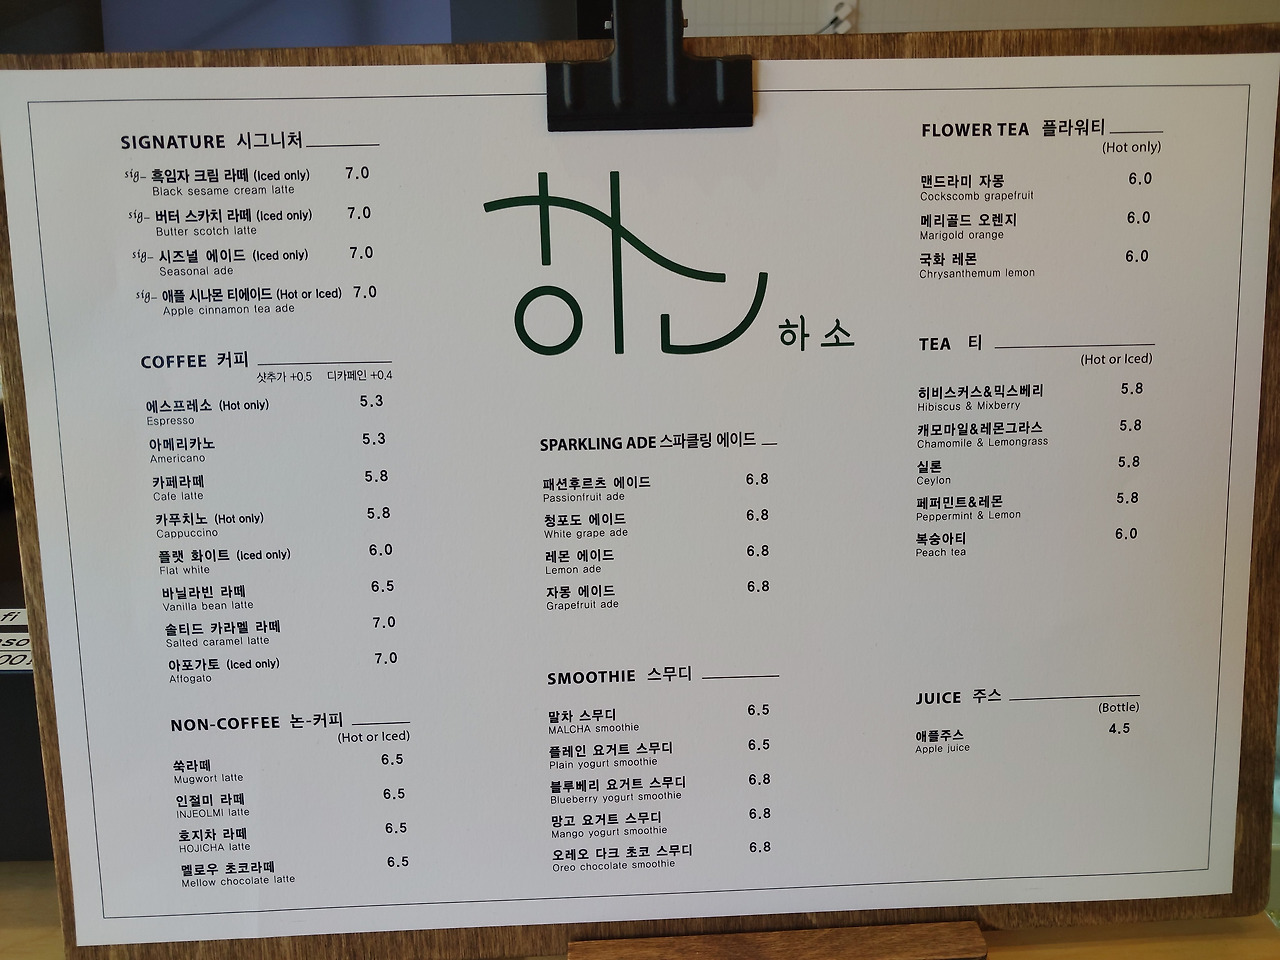 SIGNATURE 시그니처
sig- 흑임자 크림 라떼 (Iced only) 7.0
Black sesame cream latte
sig- 버터 스카치 라떼 (Iced only) 7.0
Butter scotch latte
sig- 시즈널 에이드 (Iced only) 7.0
Seasonal ade
sig- 애플 시나몬 티에이드 (Hot or Iced) 7.0
Apple cinnamon tea ade
COFFEE 커피
샷추가 +0.5 디카페인 +0.4
에스프레소 (Hot only) 5.3
Espresso
아메리카노 5.3
Americano
카페라떼 5.8
Cafe latte
카푸치노 (Hot only) 5.8
Cappuccino
플랫 화이트 (Iced only) 6.0
Flat white
바닐라빈 라떼 6.5
Vanilla bean latte
솔티드 카라멜 라떼 7.0
Salted caramel latte
아포가토 (Iced only) 7.0
Affogato
NON-COFFEE 논-커피
(Hot or Iced)
쑥라떼 6.5
Mugwort latte
인절미 라떼 6.5
INJEOLMI latte
호지차 라떼 6.5
HOJICHA latte
멜로우 초코라떼 6.5
Mellow chocolate latte
하소
하소
SPARKLING ADE 스파클링 에이드
패션후르츠 에이드 6.8
Passionfruit ade
청포도 에이드 6.8
White grape ade
레몬 에이드 6.8
Lemon ade
자몽 에이드 6.8
Grapefruit ade
SMOOTHIE 스무디
말차 스무디 6.5
MALCHA smoothie
플레인 요거트 스무디 6.5
Plain yogurt smoothie
블루베리 요거트 스무디 6.8
Blueberry yogurt smoothie
망고 요거트 스무디 6.8
Mango yogurt smoothie
오레오 다크 초코 스무디 6.8
Oreo chocolate smoothie
FLOWER TEA 플라워티
(Hot only)
맨드라미 자몽 6.0
Cockscomb grapefruit
메리골드 오렌지 6.0
Marigold orange
국화 레몬 6.0
Chrysanthemum lemon
TEA 티
(Hot or Iced)
히비스커스&믹스베리 5.8
Hibiscus & Mixberry
캐모마일&레몬그라스 5.8
Chamomile & Lemongrass
실론 5.8
Ceylon
페퍼민트&레몬 5.8
Peppermint & Lemon
복숭아티 6.0
Peach tea
JUICE 주스
(Bottle)
애플주스 4.5
Apple juice